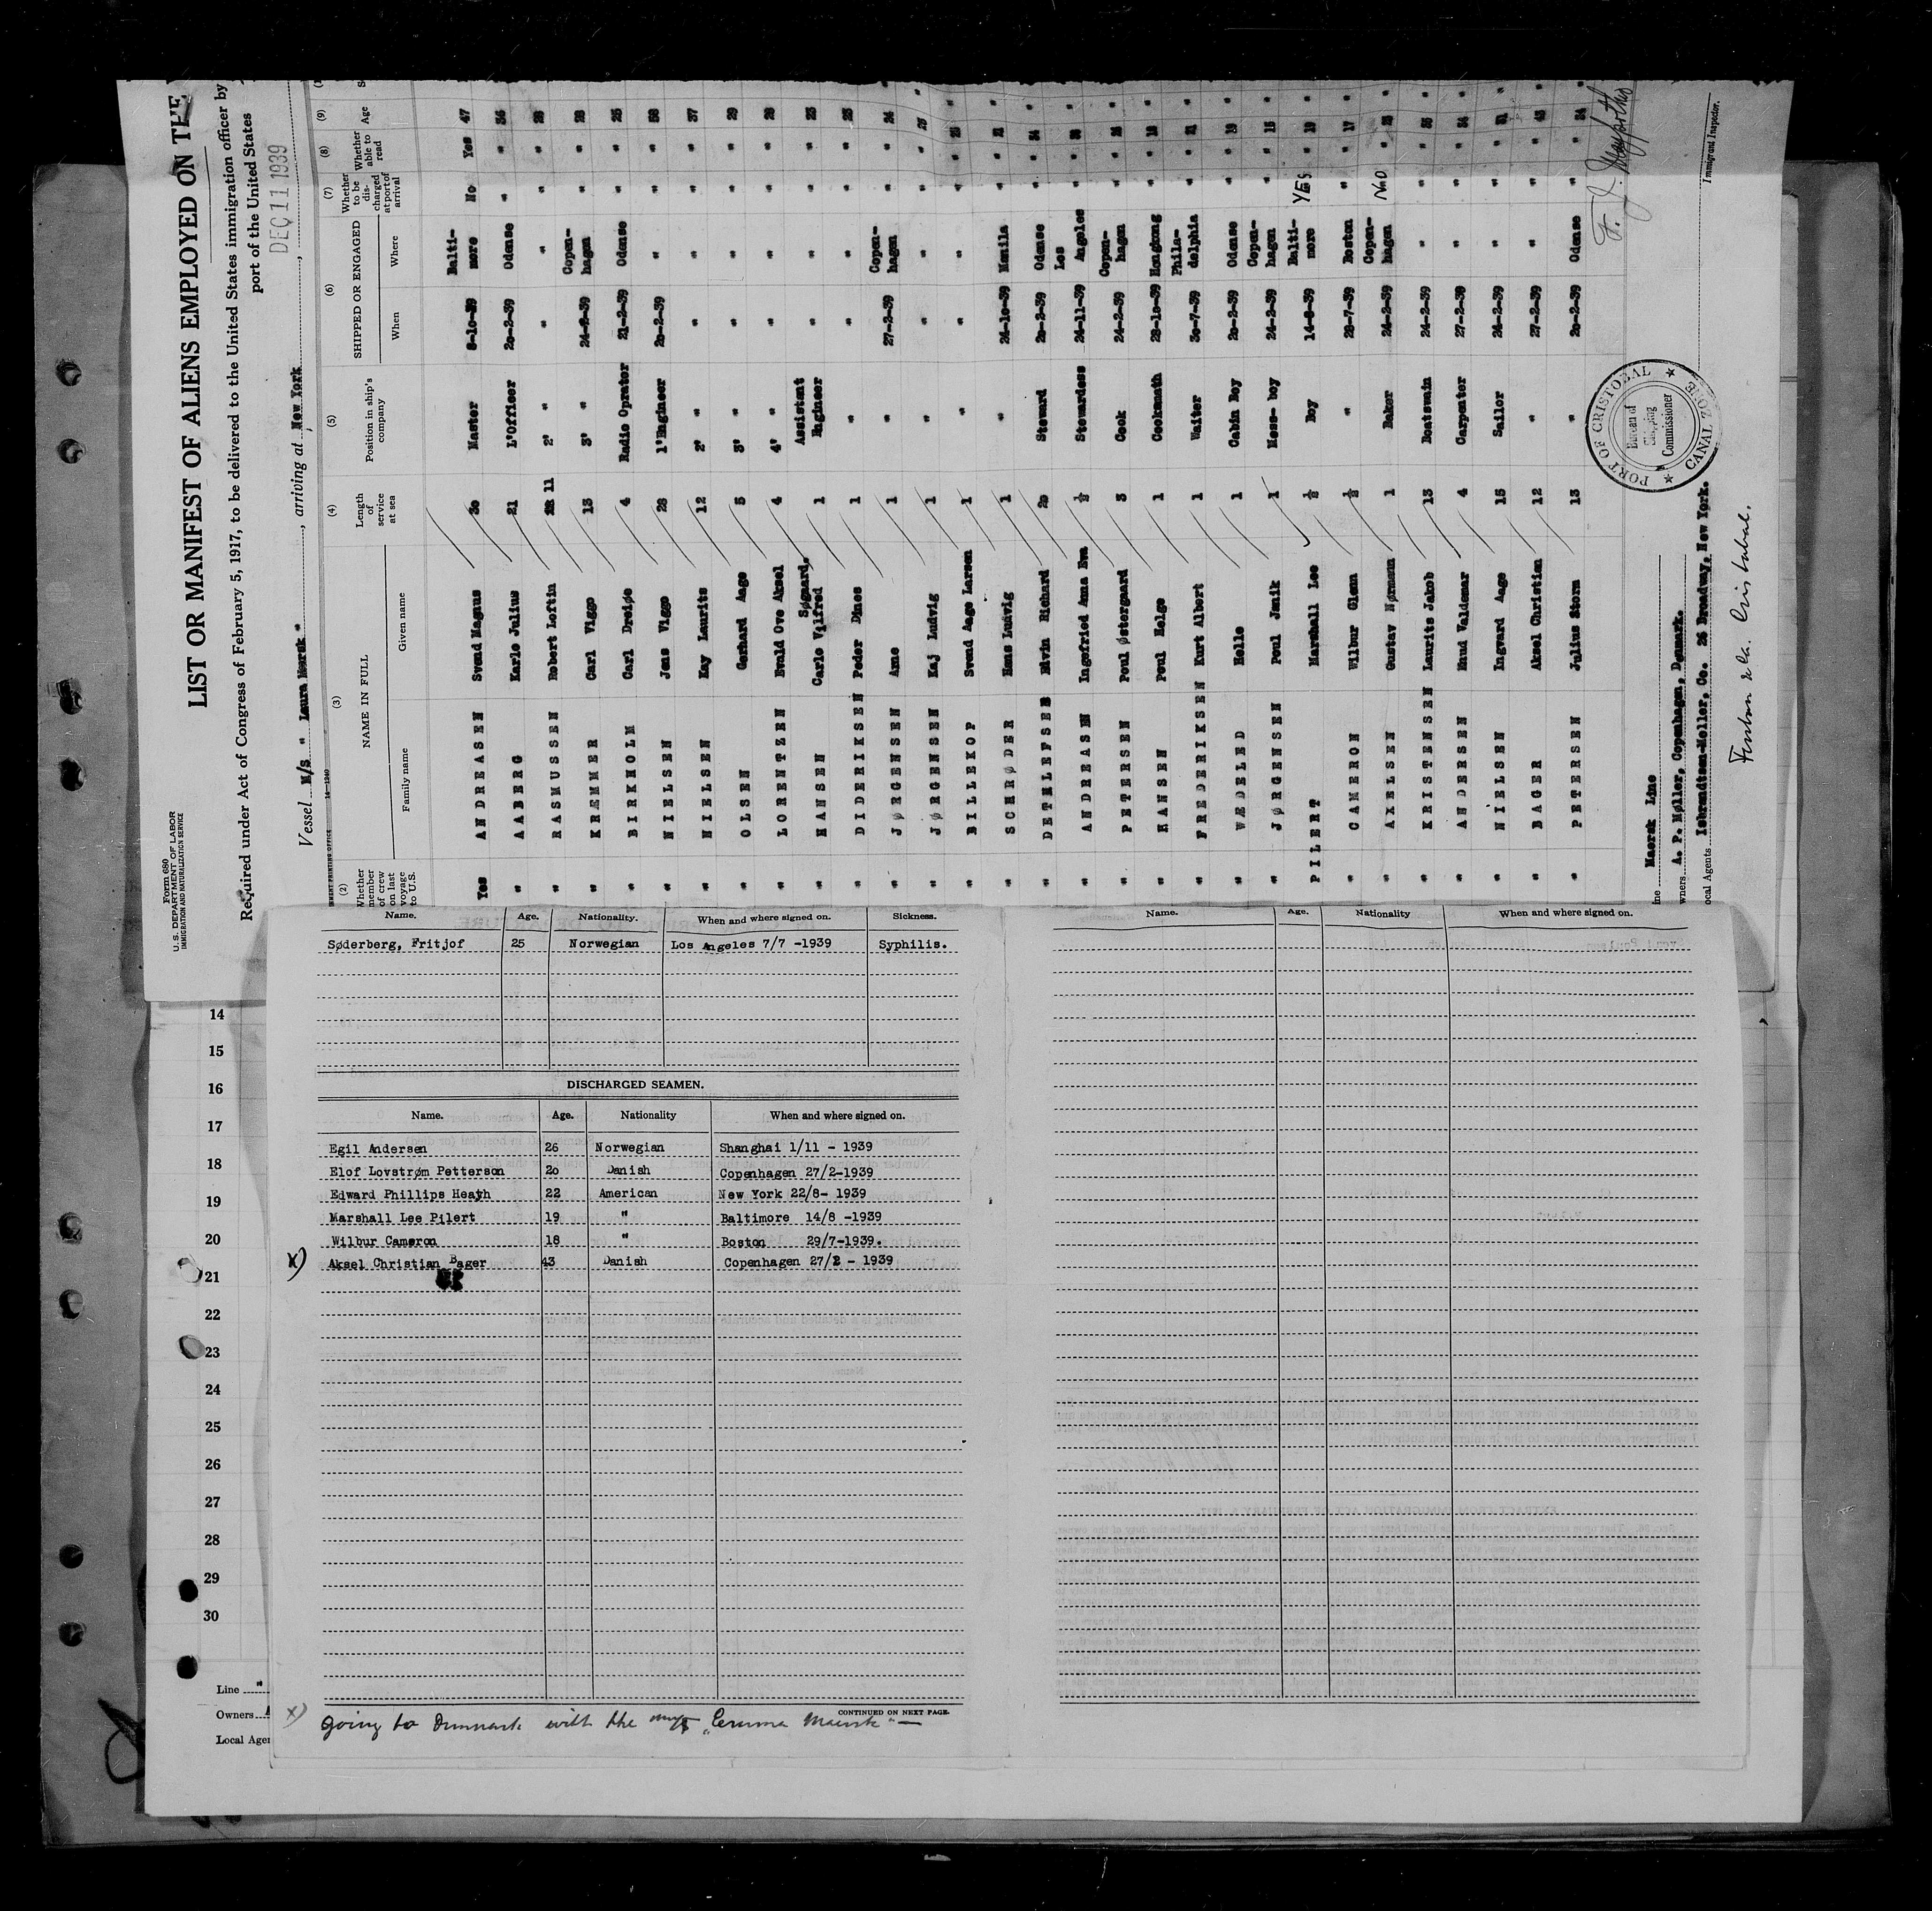 Form 680
U.S. DEPARTMENT OF LABOR
IMMIGRATION AND NATURALIZATION SERVICE
LIST OR MANIFEST OF ALIENS EMPLOYED ON THE
Required under Act of Congress of February 5, 1917, to be delivered to the United States immigration officer by
port of the United States
DEC 11 1939
Vessel M/S " Laura Mærsk " , arriving at New York ,
(2) (3) (4) (5) (6) (7) (8) (9)
Whether member of crew on last voyage to U.S. NAME IN FULL Family name Given name Length of service at sea Position in ship's company SHIPPED OR ENGAGED When Where Whether to be dis-charged at port of arrival Whether able to read Age
Yes ANDREASEN Svend Magnus 30 Master 8-10-39 Balti-more No Yes 47
" AABERG Karlo Julius 21 1'Officer 20-2-39 Odense " " 36
" RASMUSSEN Robert Loftin 11 2' " " " " "
" KRÆMMER Carl Viggo 13 3' " 24-2-39 Copen-hagen " " 28
" BIRKHOLM Carl Dreiøe 4 Radio Oprator 21-2-39 Odense " " 25
" NIELSEN Jens Viggo 28 1'Engineer 20-2-39 " " " 58
" NIELSEN Kay Laurits 12 2' " " " " " 37
" OLSEN Gerhard Aage 5 3' " " " " " 29
" LORENTZEN Evald Ove Aksel 4 4' " " " " " 28
" HANSEN Søgaard, Carlo Vilfred 1 Assistent Engineer " " " " 23
" DIDERIKSEN Peder Dines 1 " " " " " 23
" JØRGENSEN Arne 1 " 27-2-39 Copen-hagen " " 24
" JØRGENSEN Kaj Ludvig 1 " " " " " 25
" BILLEKOP Svend Aage Larsen 1 " " " " " 25
" SCHRØDER Hans Ludvig 1 " 24-10-39 Manila " " 21
" DETHLEFSEN Elvin Richard 20 Steward 20-2-39 Odense " " 34
" ANDREASEN Ingefried Anna Eva ½ Stewardess 24-11-39 Los Angeles " "
" PETERSEN Poul Østergaard 3 Cook 24-2-39 Copen-hagen " "
" HANSEN Poul Helge 1 Cooksmath 28-10-39 Hongkong " " 18
" FREDERIKSEN Kurt Albert 1 Waiter 30-7-39 Phila-delphia " " 21
" WÆDELED Helle 1 Cabin Boy 20-2-39 Odense " " 19
" JØRGENSEN Poul Janik 1 Mess- boy 24-2-39 Copen-hagen " " 15
PILERT Marshall Lee ½ Boy 14-8-39 Balti-more YES " 19
" CAMERON Wilbur Glenn ½ " 28-7-39 Boston " " 17
" AXELSEN Gustav Nørmann 1 Baker 24-2-39 Copen-hagen NO "
" KRISTENSEN Laurits Jakob 13 Boatswain 24-2-39 " " "
" ANDERSEN Knud Valdemar 4 Carpenter 27-2-39 " " " 24
" NIELSEN Ingvard Aage 15 Sailor 24-2-39 " " " 31
" BAGER Aksel Christian 12 " 27-2-39 " " " 43
" PETERSEN Julius Storm 13 " 20-2-39 Odense " " 34
PORT OF CRISTOBAL
CANAL ZONE
Bureau of
Shipping
Commissioner
Immigrant Inspector.
Line Maersk Line
Owners A. P. Møller, Copenhagen, Denmark.
Local Agents Isbrandtsen-Moller, Co. 26 Broadway, New York.
Name. Age. Nationality. When and where signed on. Sickness.
Søderberg, Fritjof 25 Norwegian Los Angeles 7/7 -1939 Syphilis.
DISCHARGED SEAMEN.
Name. Age. Nationality When and where signed on.
Egil Andersen 26 Norwegian Shanghai 1/11 - 1939
Elof Lovstrøm Petterson 20 Danish Copenhagen 27/2-1939
Edward Phillips Heath 22 American New York 22/8- 1939
Marshall Lee Pilert 19 " Baltimore 14/8 -1939
Wilbur Cameron 18 " Boston 29/7-1939.
x) Aksel Christian Bager 43 Danish Copenhagen 27/2 - 1939
CONTINUED ON NEXT PAGE.
x) going to Denmark with the
Name. Age. Nationality When and where signed on.
14
15
16
17
18
19
20
21
22
23
24
25
26
27
28
29
30
Line "
Owners
Local Agen